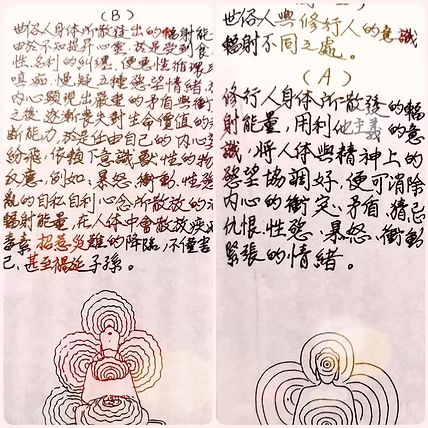 (B)
世俗人身体所散发出的輻射能
由於不知提昇心靈,於是受到食
性,名利的糾纏,便电性循環
嗔、痴、慢、疑五種慾望情緒,
内心顯現出嚴重的矛盾與衝
之後逐漸喪失對生命價值的
断能力,於是任由自己的内心
紛飛,依賴下意識獸性的物
反應,例如:暴怒、衝動、性慾
亂的自私自利心念所散放的
輻射能量,在人体中會散放疾
毒素,招惹災難的降臨,不僅害
己,甚至禍延子孫。
世俗人與修行人的意識
輻射不同之處。
(A)
修行人身体所散發的輻
射能量,用利他主義的意
識,將人体與精神上的
慾望協調好,便可消除
内心的衝突、矛盾、猜忌
仇恨、性慾、暴怒、衝動
緊張的情緒。